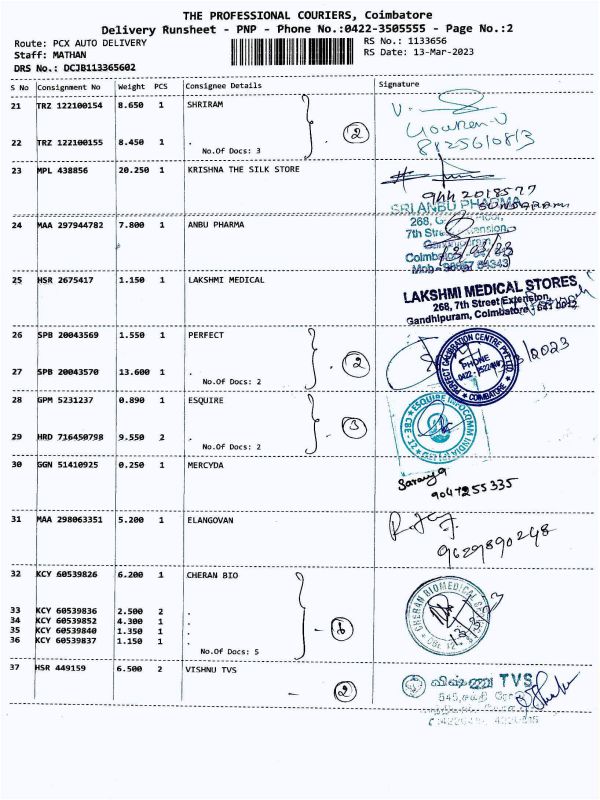 THE PROFESSIONAL COURIERS, Coimbatore
Delivery Runsheet - PNP - Phone No.:0422-3505555 - Page No.:2
Route: PCX AUTO DELIVERY
RS No.: 1133656
Staff: MATHAN
RS Date: 13-Mar-2023
DRS No.: DCJB113365602
S No Consignment No Weight PCS Consignee Details Signature
21 TRZ 122100154 8.650 1 SHRIRAM
22 TRZ 122100155 8.450 1 .
No.Of Docs: 3
2
23 MPL 438856 20.250 1 KRISHNA THE SILK STORE
9442018577
SRI ANBU PHARMA
24 MAA 297944782 7.800 1 ANBU PHARMA
268,
7th
Coimb
25 HSR 2675417 1.150 1 LAKSHMI MEDICAL
LAKSHMI MEDICAL STORES
268, 7th Street Extension,
Gandhipuram, Coimbatore - 641 0012
26 SPB 20043569 1.550 1 PERFECT
27 SPB 20043570 13.600 1 .
No.Of Docs: 2
2
PERFECT CALIBRATION CENTRE PVT LTD
PHONE
COIMBATORE
28 GPM 5231237 0.890 1 ESQUIRE
29 HRD 716450798 9.550 2 .
No.Of Docs: 2
3
30 GGN 51410925 0.250 1 MERCYDA
Saranya
9047255335
31 MAA 298063351 5.200 1 ELANGOVAN
9629890248
32 KCY 60539826 6.200 1 CHERAN BIO
33 KCY 60539836 2.500 2 .
34 KCY 60539852 4.300 1 .
35 KCY 60539840 1.350 1 .
36 KCY 60539837 1.150 1 .
No.Of Docs: 5
6
CHERAN BIOMEDICAL
37 HSR 449159 6.500 2 VISHNU TVS
2
விஷ்ணு TVS